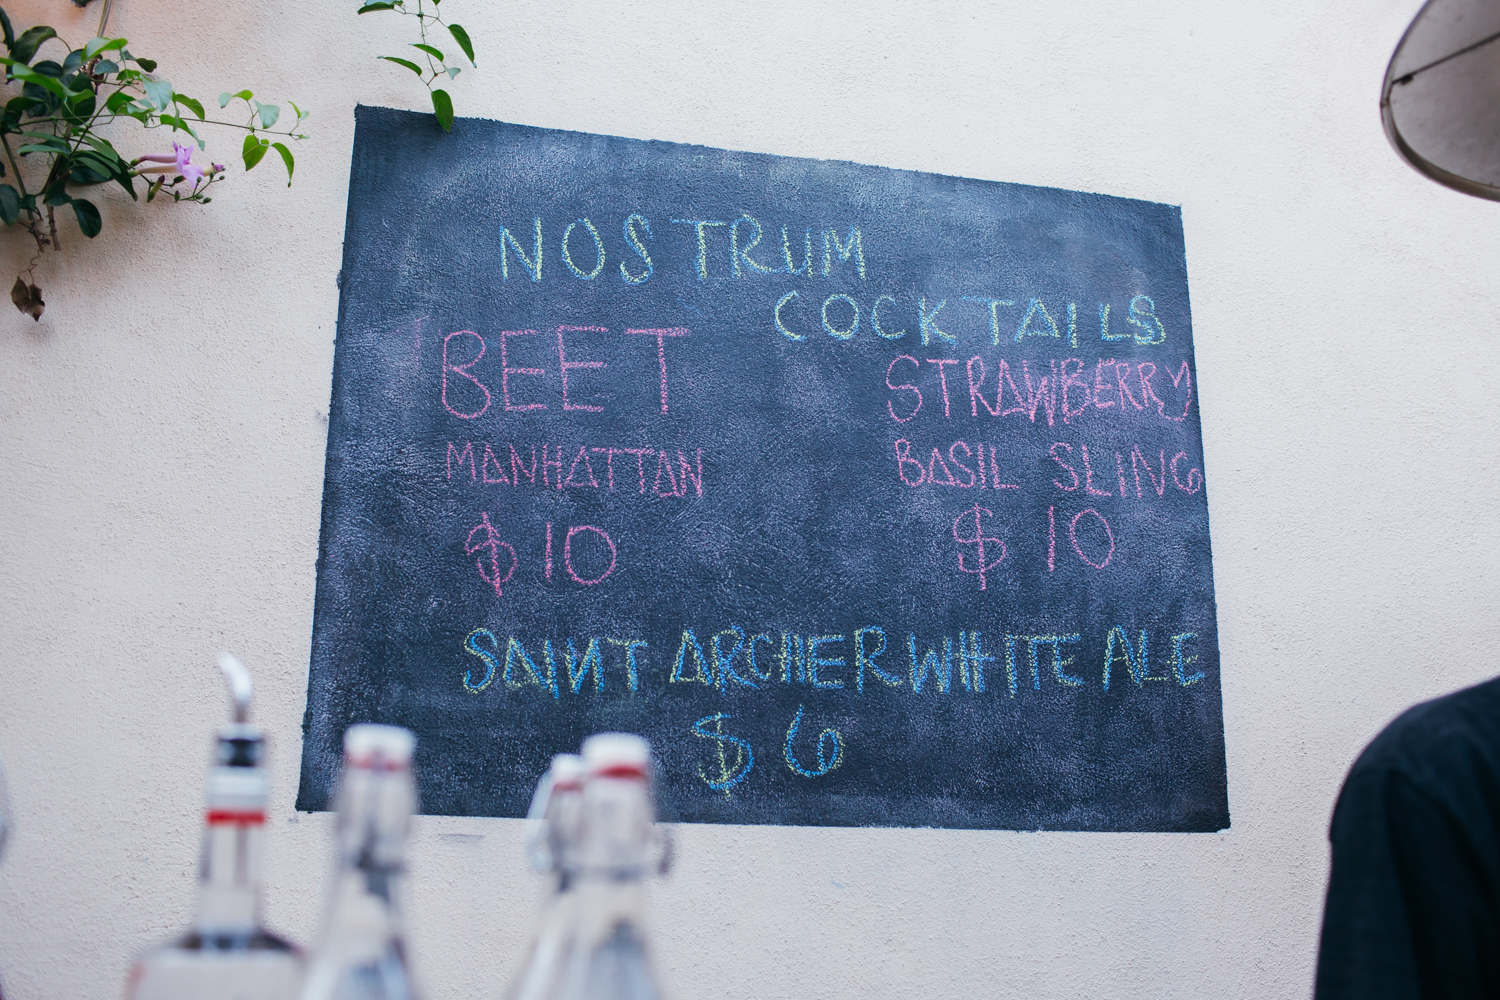 NOSTRUM
COCKTAILS
BEET
MANHATTAN
$10
STRAWBERRY
BASIL SLING
$10
SAINT ARCHER WHITE ALE
$6